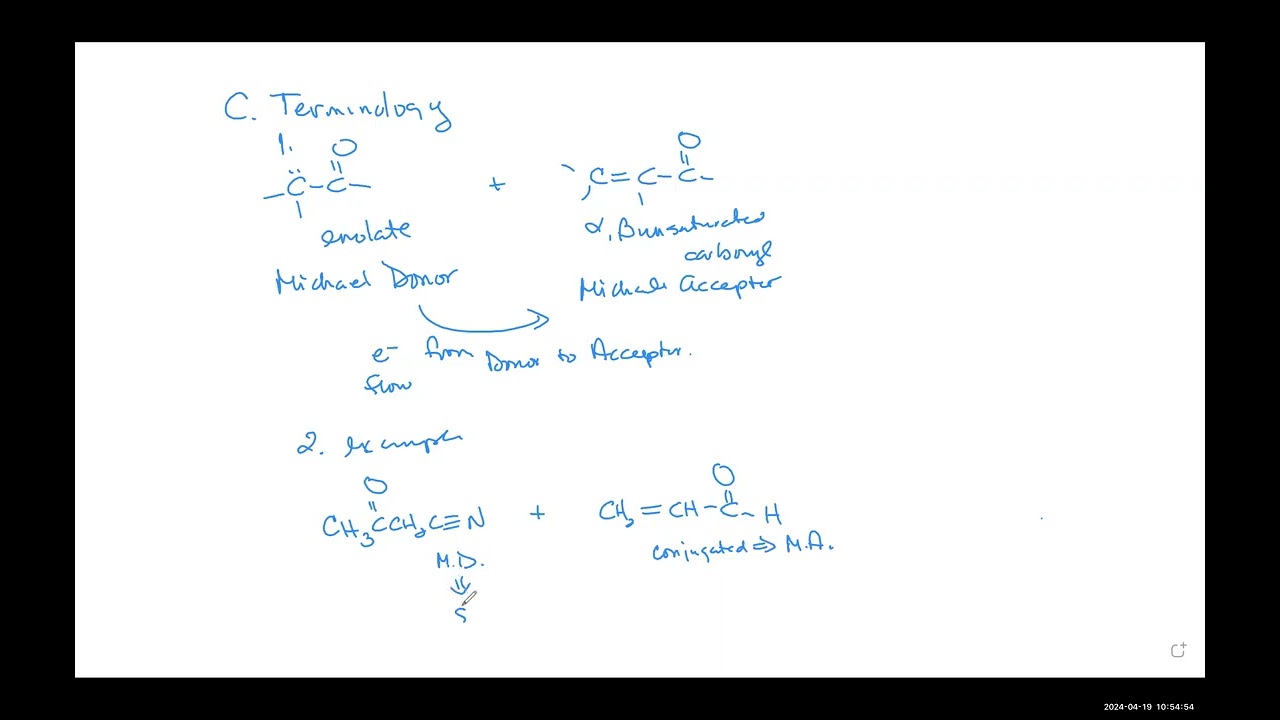 C. Terminology
1.
O
‖
– C̈ – C –
|
+
O
‖
C = C – C –
|
enolate
α, B unsaturated
carbonyl
Michael Donor
Michale Acceptor
e⁻ from Donor to Acceptor.
flow
2. example
O
‖
CH₃CCH₂C≡N
+
O
‖
CH₂ = CH – C – H
M.D.
⇓
S
conjugated ⇒ M.A.
2024-04-19 10:54:54